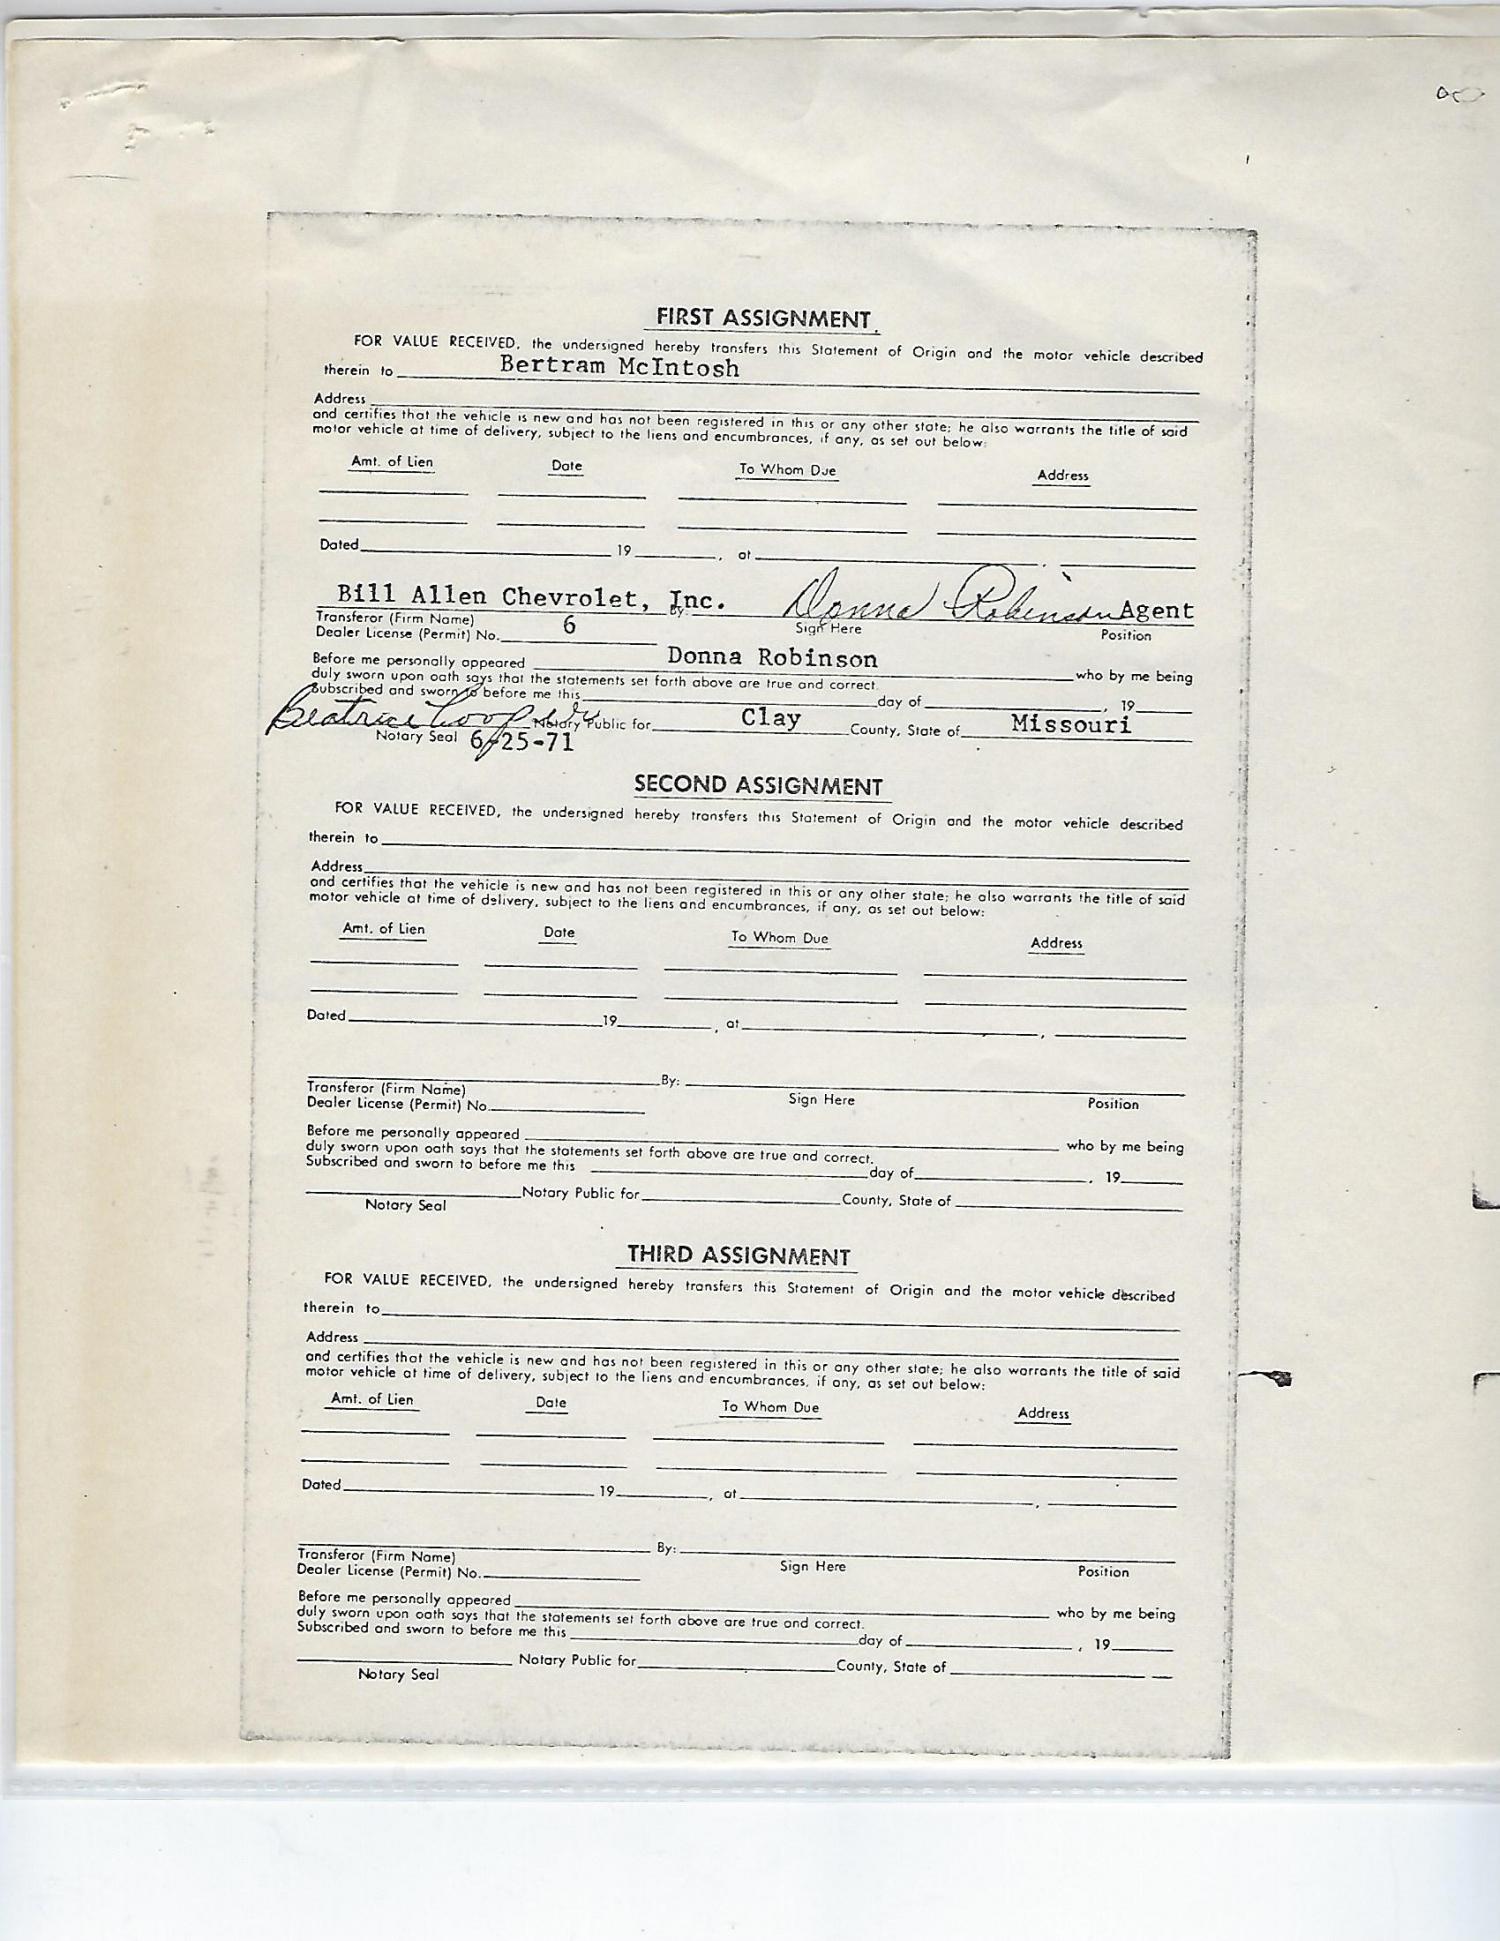 FIRST ASSIGNMENT
FOR VALUE RECEIVED, the undersigned hereby transfers this Statement of Origin and the motor vehicle described
therein to Bertram McIntosh
Address
and certifies that the vehicle is new and has not been registered in this or any other state; he also warrants the title of said
motor vehicle at time of delivery, subject to the liens and encumbrances, if any, as set out below:
Amt. of Lien Date To Whom Due Address
Dated 19 , at ,
Bill Allen Chevrolet, Inc. By: Donna Robinson Agent
Transferor (Firm Name) Sign Here Position
Dealer License (Permit) No. 6
Before me personally appeared Donna Robinson who by me being
duly sworn upon oath says that the statements set forth above are true and correct.
Subscribed and sworn to before me this day of , 19
Beatrice Notary Public for Clay County, State of Missouri
Notary Seal 6-25-71
SECOND ASSIGNMENT
FOR VALUE RECEIVED, the undersigned hereby transfers this Statement of Origin and the motor vehicle described
therein to
Address
and certifies that the vehicle is new and has not been registered in this or any other state; he also warrants the title of said
motor vehicle at time of delivery, subject to the liens and encumbrances, if any, as set out below:
Amt. of Lien Date To Whom Due Address
Dated 19 , at ,
By:
Transferor (Firm Name) Sign Here Position
Dealer License (Permit) No.
Before me personally appeared who by me being
duly sworn upon oath says that the statements set forth above are true and correct.
Subscribed and sworn to before me this day of , 19
Notary Public for County, State of
Notary Seal
THIRD ASSIGNMENT
FOR VALUE RECEIVED, the undersigned hereby transfers this Statement of Origin and the motor vehicle described
therein to
Address
and certifies that the vehicle is new and has not been registered in this or any other state; he also warrants the title of said
motor vehicle at time of delivery, subject to the liens and encumbrances, if any, as set out below:
Amt. of Lien Date To Whom Due Address
Dated 19 , at ,
By:
Transferor (Firm Name) Sign Here Position
Dealer License (Permit) No.
Before me personally appeared who by me being
duly sworn upon oath says that the statements set forth above are true and correct.
Subscribed and sworn to before me this day of , 19
Notary Public for County, State of
Notary Seal